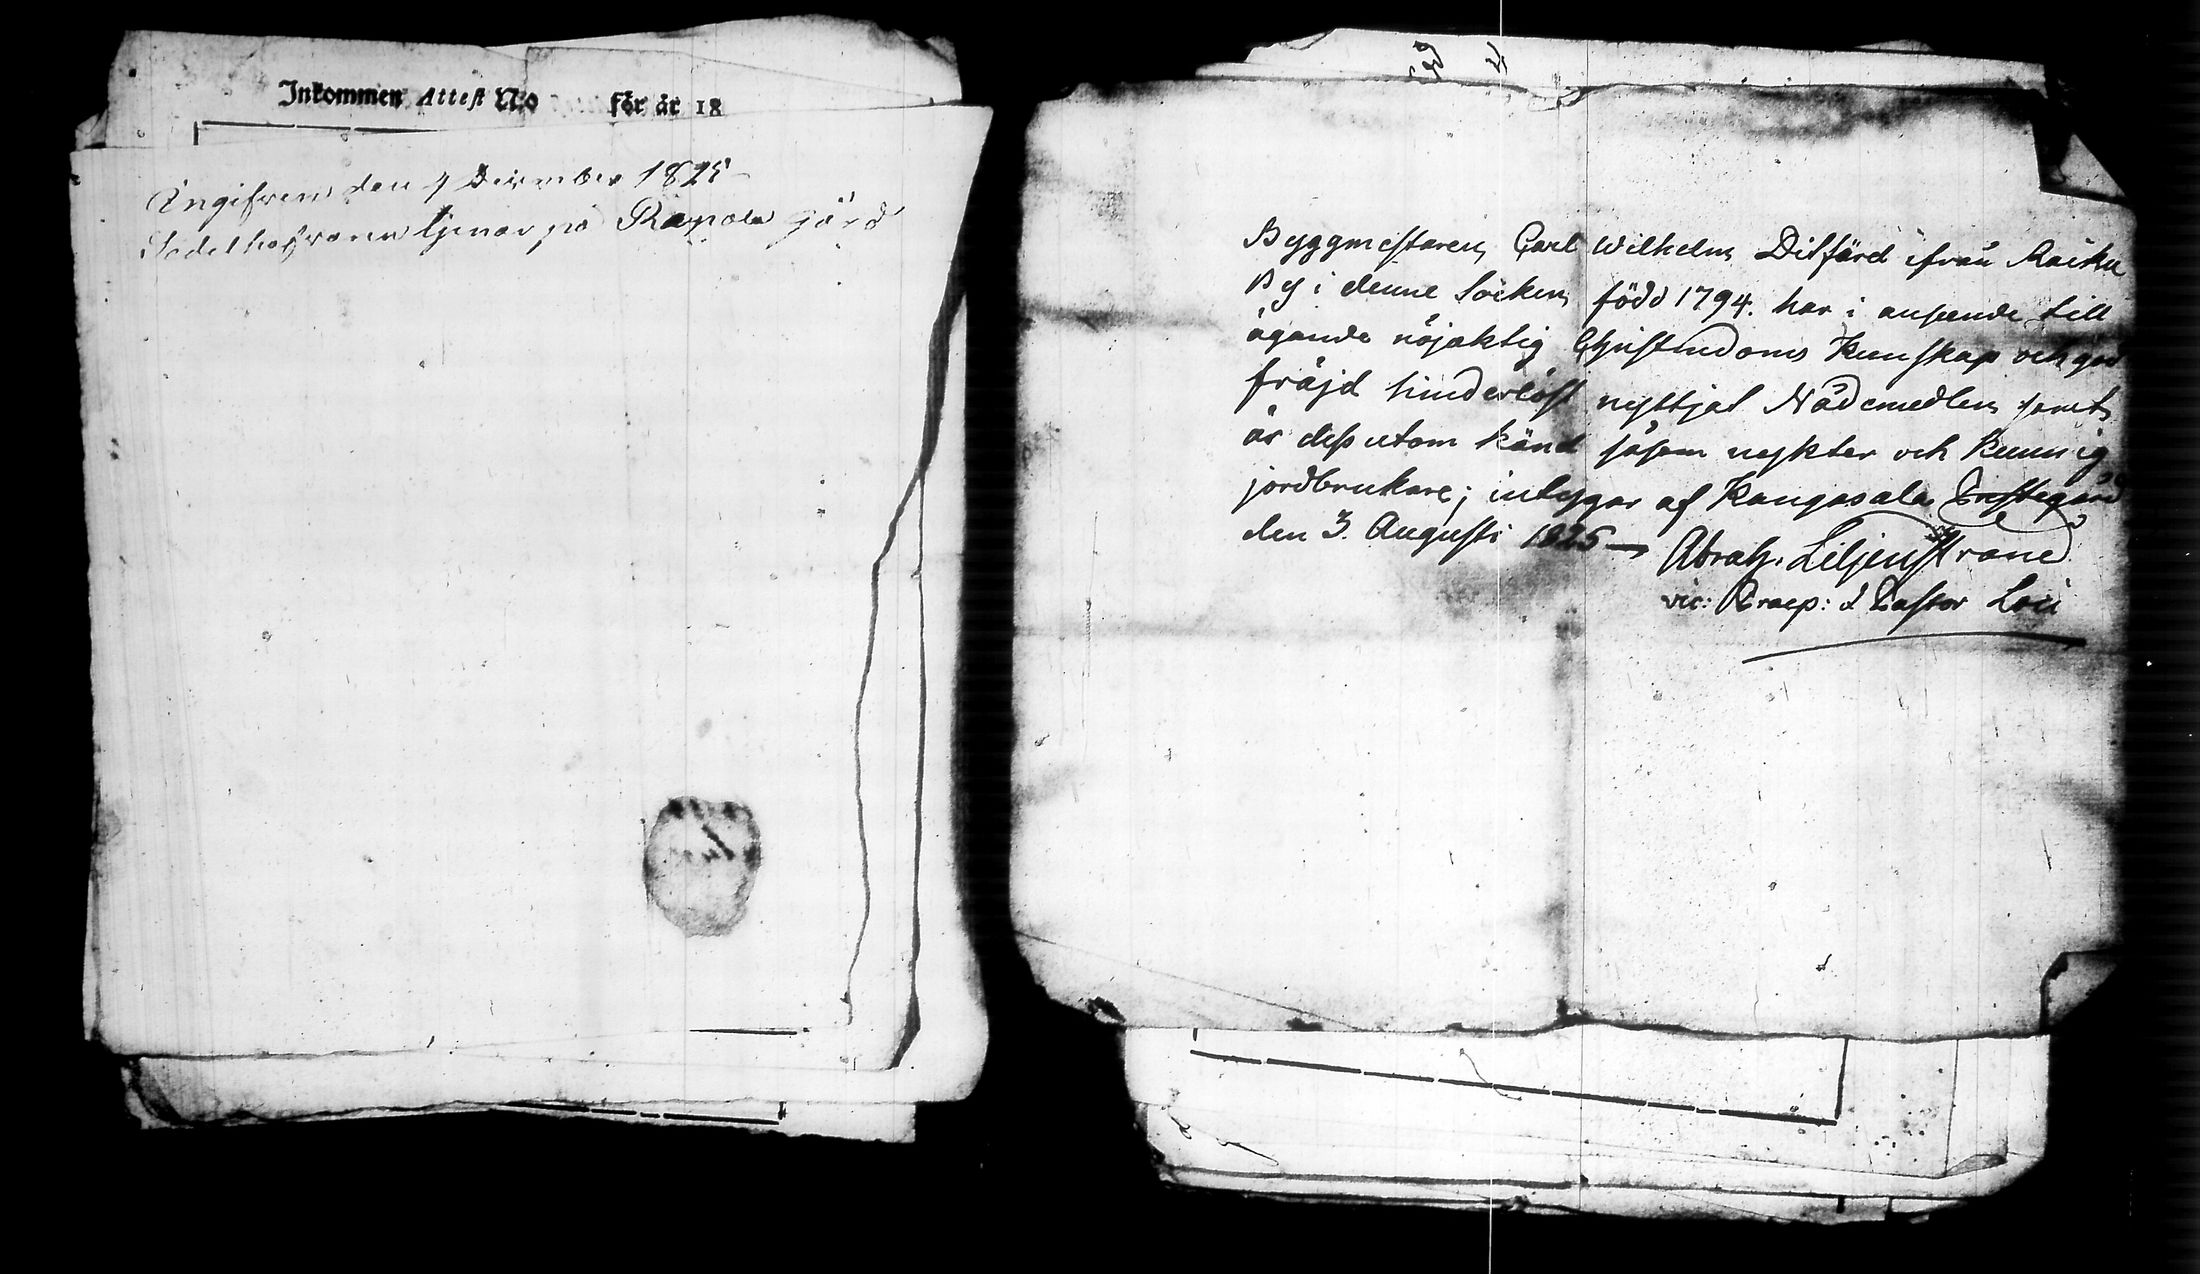 Inkommen Attest No för år 18
Angifven den 9 December 1825
Sedelhafvaren tjenar på Rapola gård
Byggmestaren Carl Wilhelm Ditfärd ifrån Raiku
By i denne Socken född 1794. har i anseende till
ägande nöjaktig Christendoms Kunskap och god
fräjd hinderlöst nyttjat Nådemedlen samt
är dessutom känd såsom nykter och kunnig
jordbrukare; intygar af Kangasala Prestegård
den 3. Augusti 1825 — Abrah. Liljenstrand
vic: Praep: & Pastor Loci